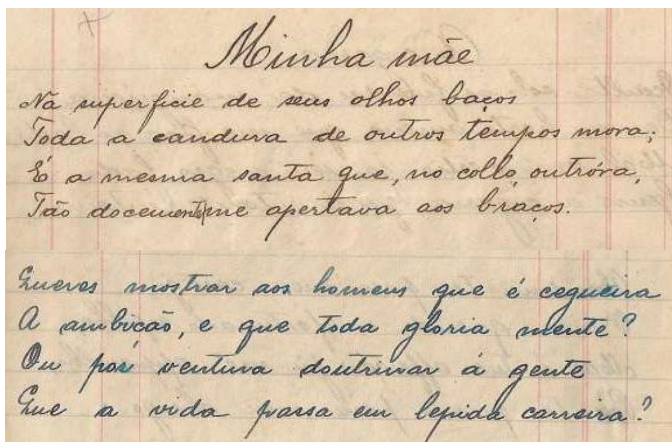 Minha mãe
Na superficie de seus olhos baços
Toda a candura de outros tempos mora;
É a mesma santa que, no collo, outróra,
Tão docemente me apertava aos braços.
Queres mostrar aos homens que é cegueira
A ambição, e que toda gloria mente?
Ou por ventura doutrinar á gente
Que a vida passa em lepida carreira?